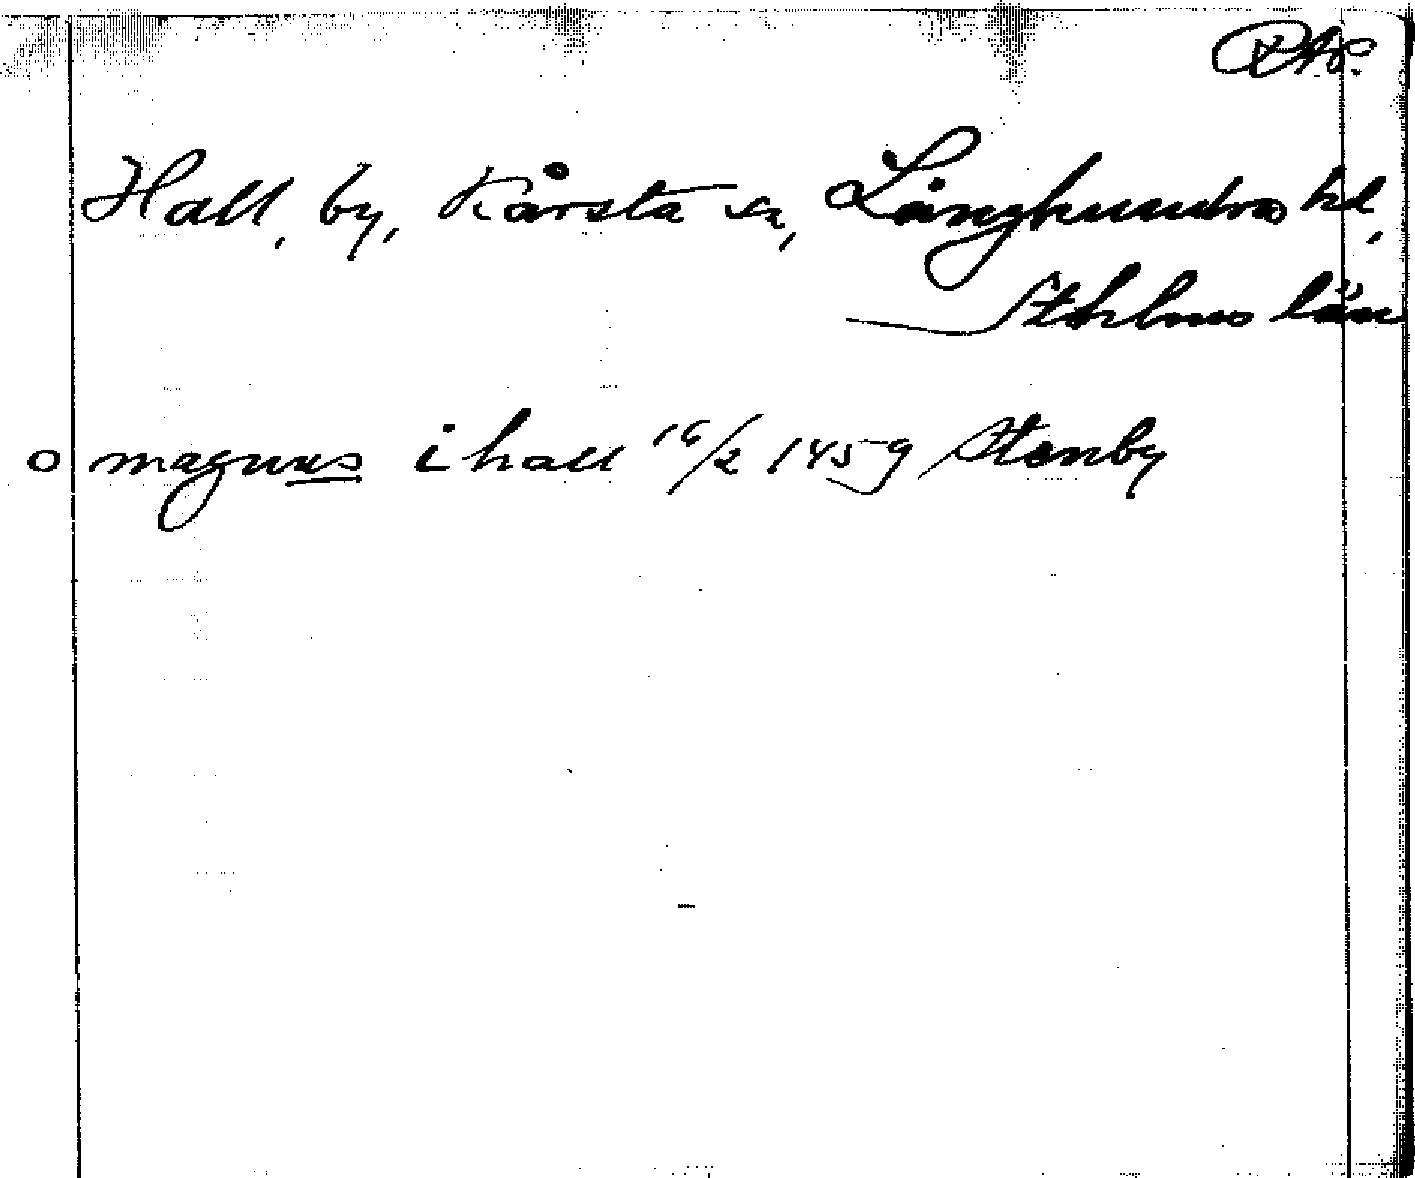 Hall, by, Kårsta sn, Långhundra hd,
Sthlms län
o magnus i hall 16/2 1459 Stenby